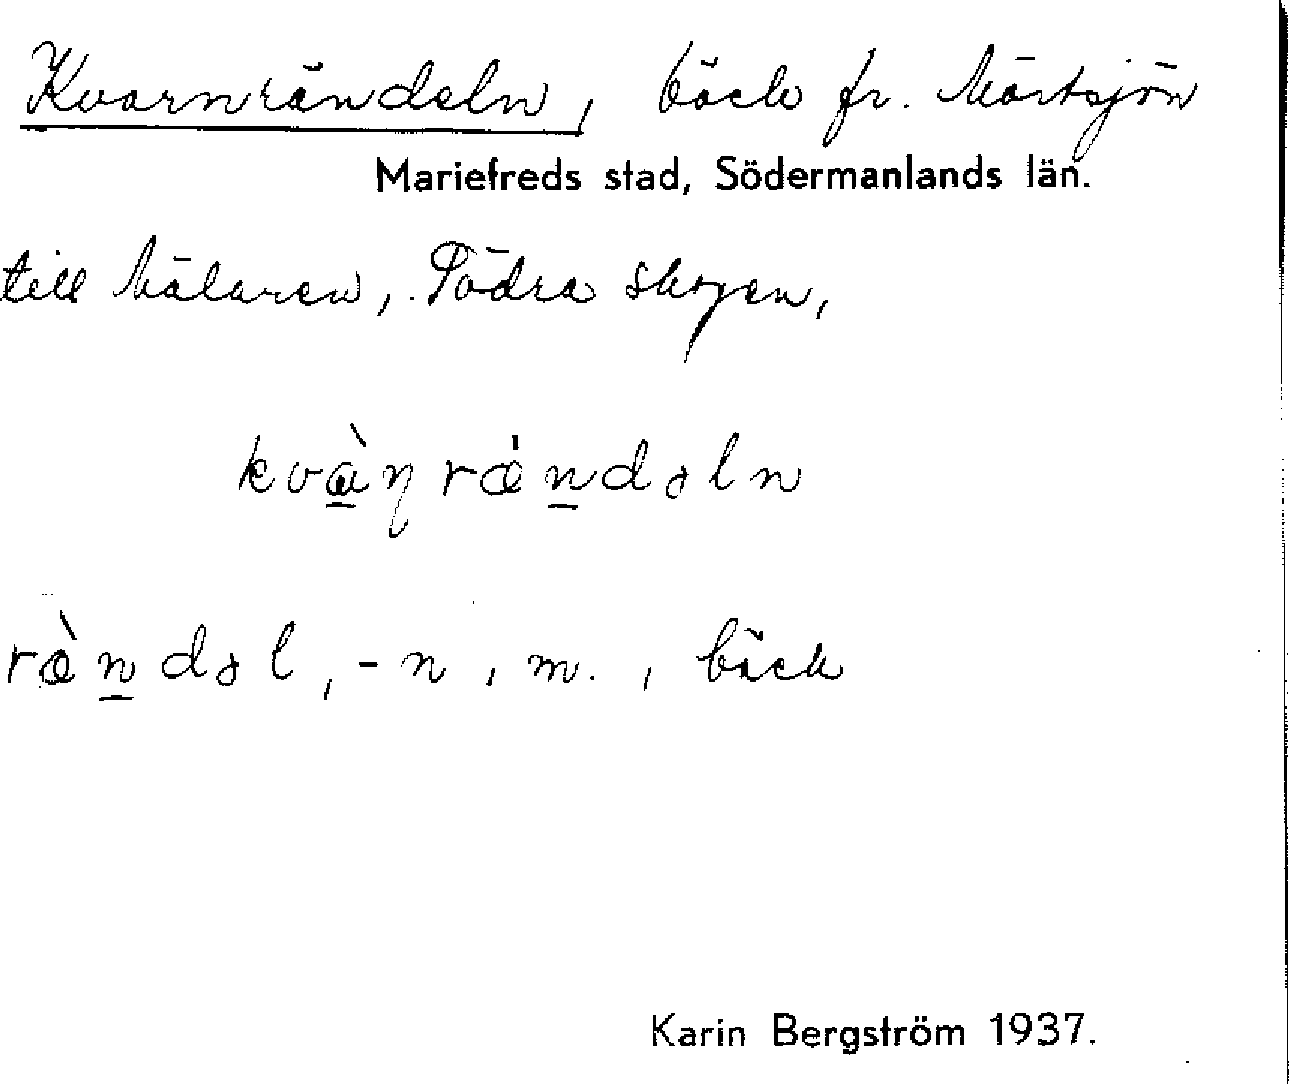 Kvarnrändeln, bäck fr. Mörtsjön
Mariefreds stad, Södermanlands län.
till Mälaren, Södra skogen,
kvàɳrǽndəln
ræ̀ndəl, -n, m., bäck
Karin Bergström 1937.